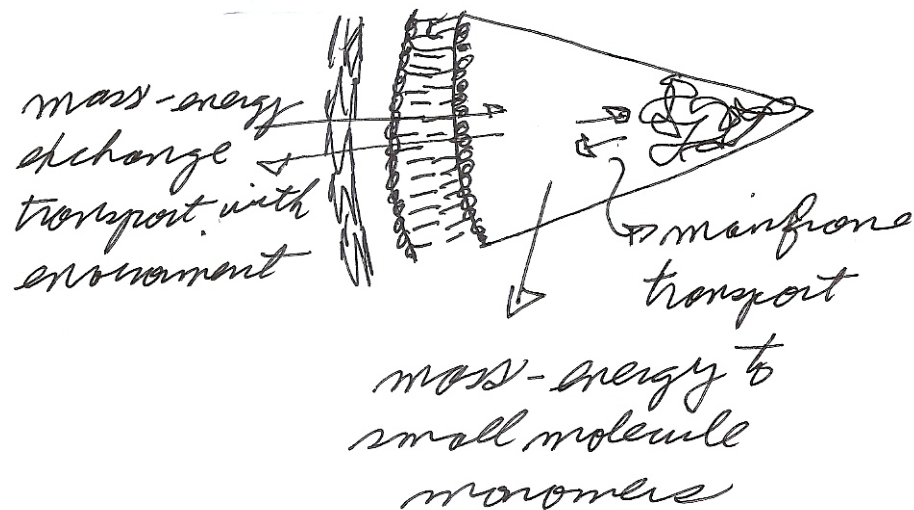 mass-energy
exchange
transport with
environment
mainframe
transport
mass-energy to
small molecule
monomers